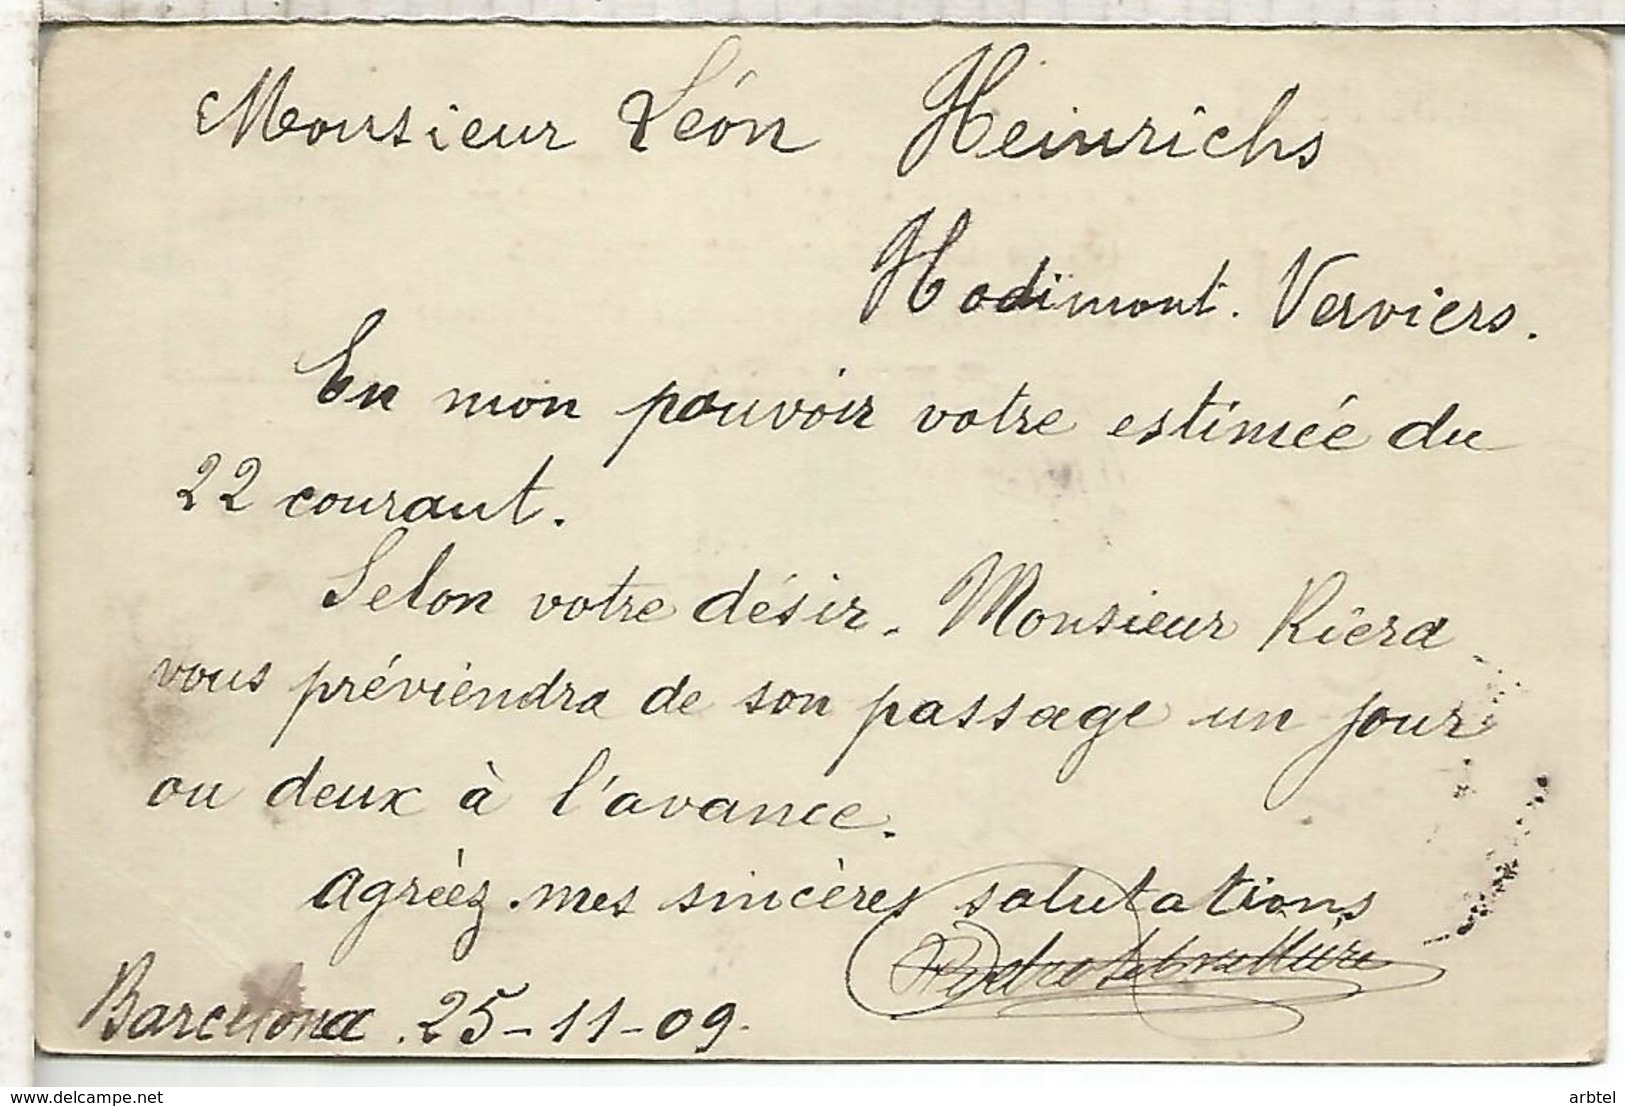 Monsieur Léon Heinrichs
Hodimont. Verviers.
En mon pouvoir votre estimée du
22 courant.
Selon votre désir. Monsieur Riera
vous préviendra de son passage un jour
ou deux à l'avance.
Agréez mes sincères salutations
Pedro
Barcelona. 25-11-09.
www.delcampe.net
arbtel